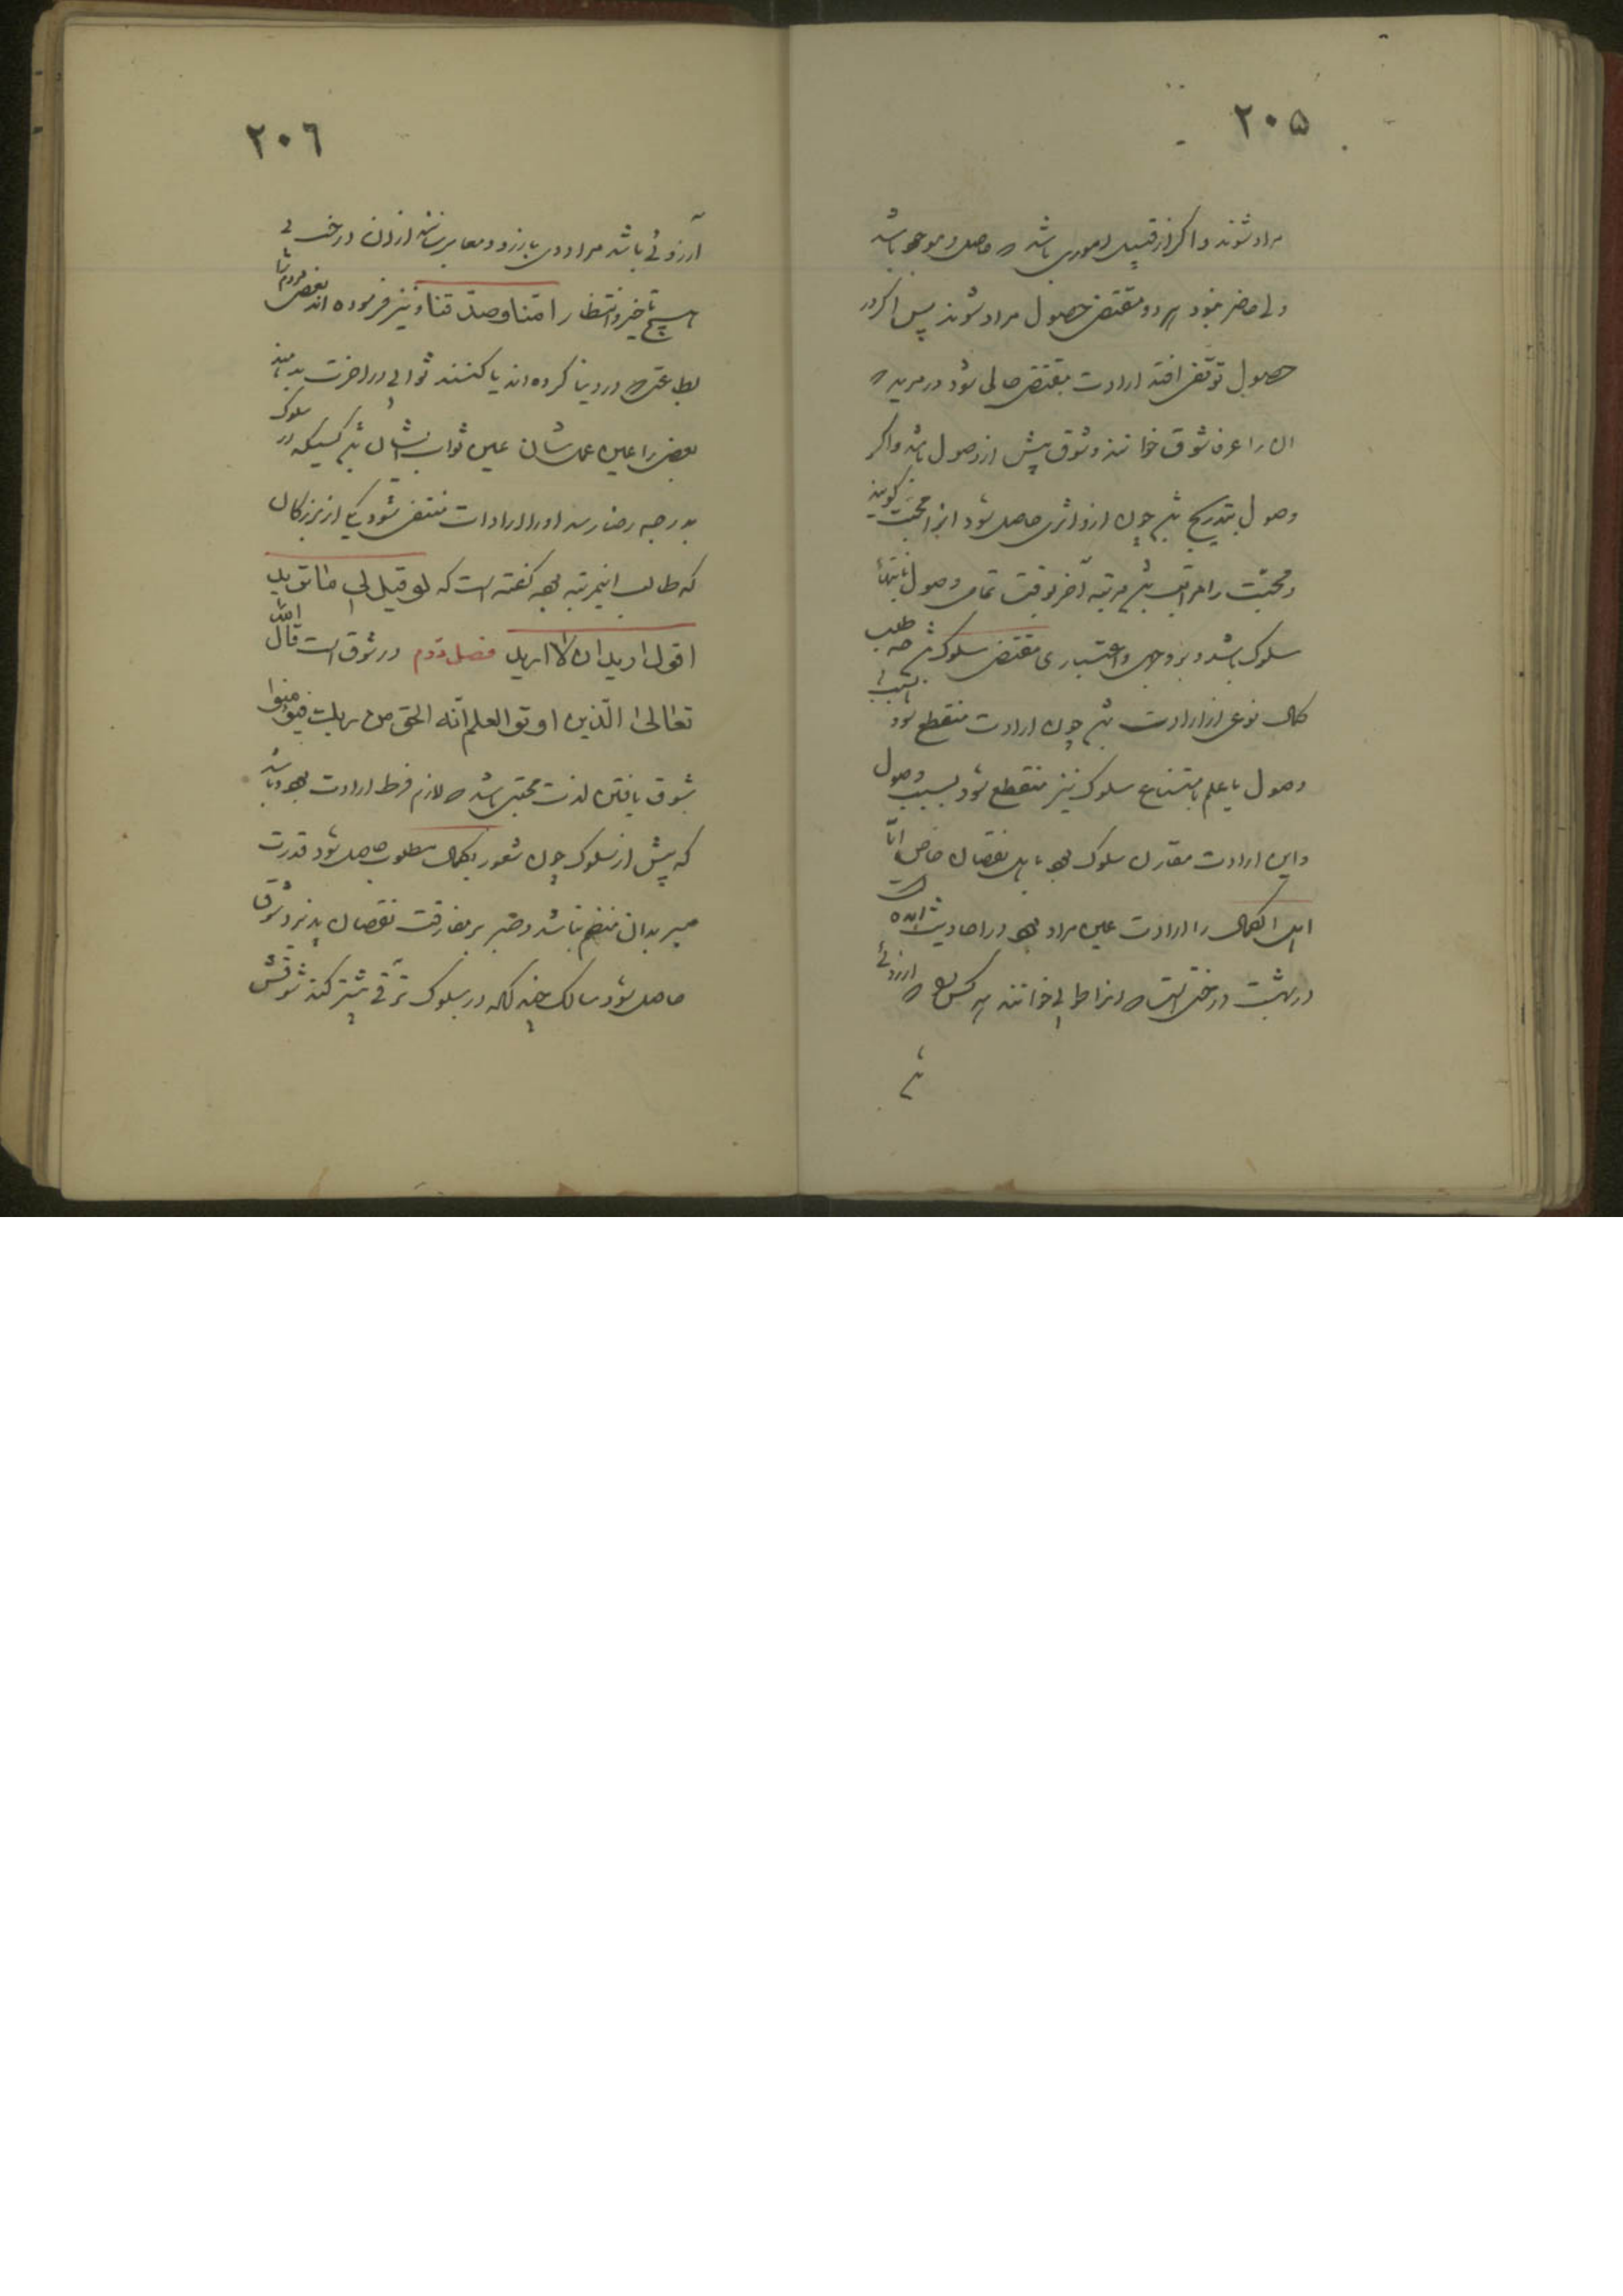 ۲۰۵
مراد شوند و اگر از قبیل اموری باشد که حاصل و موجود باشد
ولی حاضر نبود هر دو مقتضی حصول مراد شوند پس اگر در
حصول توقف افتد ارادت مقتضی حالی شود در مرید که
ان را عرفا شوق خوانند و شوق پیش از وصول باشد و اگر
وصول بتدریج باشد چون از و اثری حاصل شود انرا محبت گویند
و محبّت را مراتب باشد مرتبه آخر بوقت تمامی وصول بانتهاء
سلوک باشد و بر وجهی و اعتباری مقتضی سلوک باشد چه طلب
کمال نوعی از ارادت باشد چون ارادت منقطع شود بسبب
وصول یا علم بامتناع سلوک نیز منقطع شود بسبب وصول
و این ارادت مقارن سلوک بود باهل نقصان خاص امّا
اهل الکمال را ارادت عین مراد بود در احادیث آمده است
در بهشت درختی است که انرا طوبی خوانند هر کس را که ارزوئی
باشد
۲۰٦
آرزوئی باشد مراد وی بارزو و معا برسانند از ان درخت بی
هیچ تاخیر و انتظار امتنا و صدّقنا و نیز فرموده اند بعضی مردم را
بطاعتی که در دنیا کرده اند یا کنند ثوابی در اخرت بدهند
بعضی را عین عملشان عین ثواب ایشان باشد کسیکه در سلوک
بدرجه رضا رسد او را ارادات منتفی شود یکی از بزرگان
که طالب اینمرتبه بوده گفته است که لو قیل لی ما ترید
اقول ارید ان لا ارید فصل دوم در شوق است قال الله
تعالی الّذین اوتوا العلم انّه الحق من ربک فیؤمنوا
شوق یافتن لذت محبتی باشد که لازم فرط ارادت بود و باشد
که پیش از سلوک چون شعور بکمال مطلوب حاصل شود قدرت
سیر بدان منضم نباشد و صبر بر مفارقت نقصان پذیرد شوق
حاصل شود سالک چندانکه در سلوک ترقّی بیشتر کند شوقش